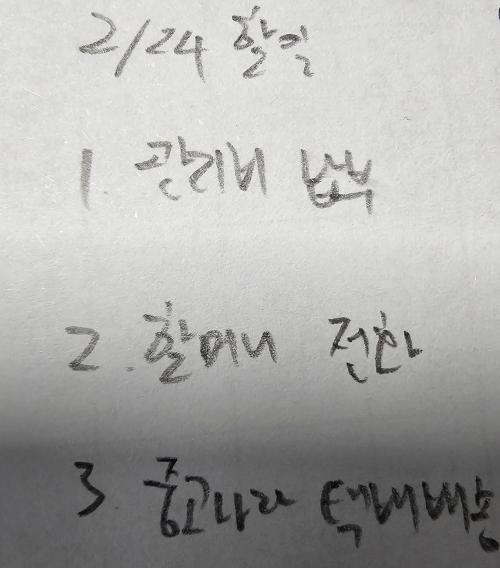 2/24 할일
1. 관리비 납부
2. 할머니 전화
3 중고나라 택배배송